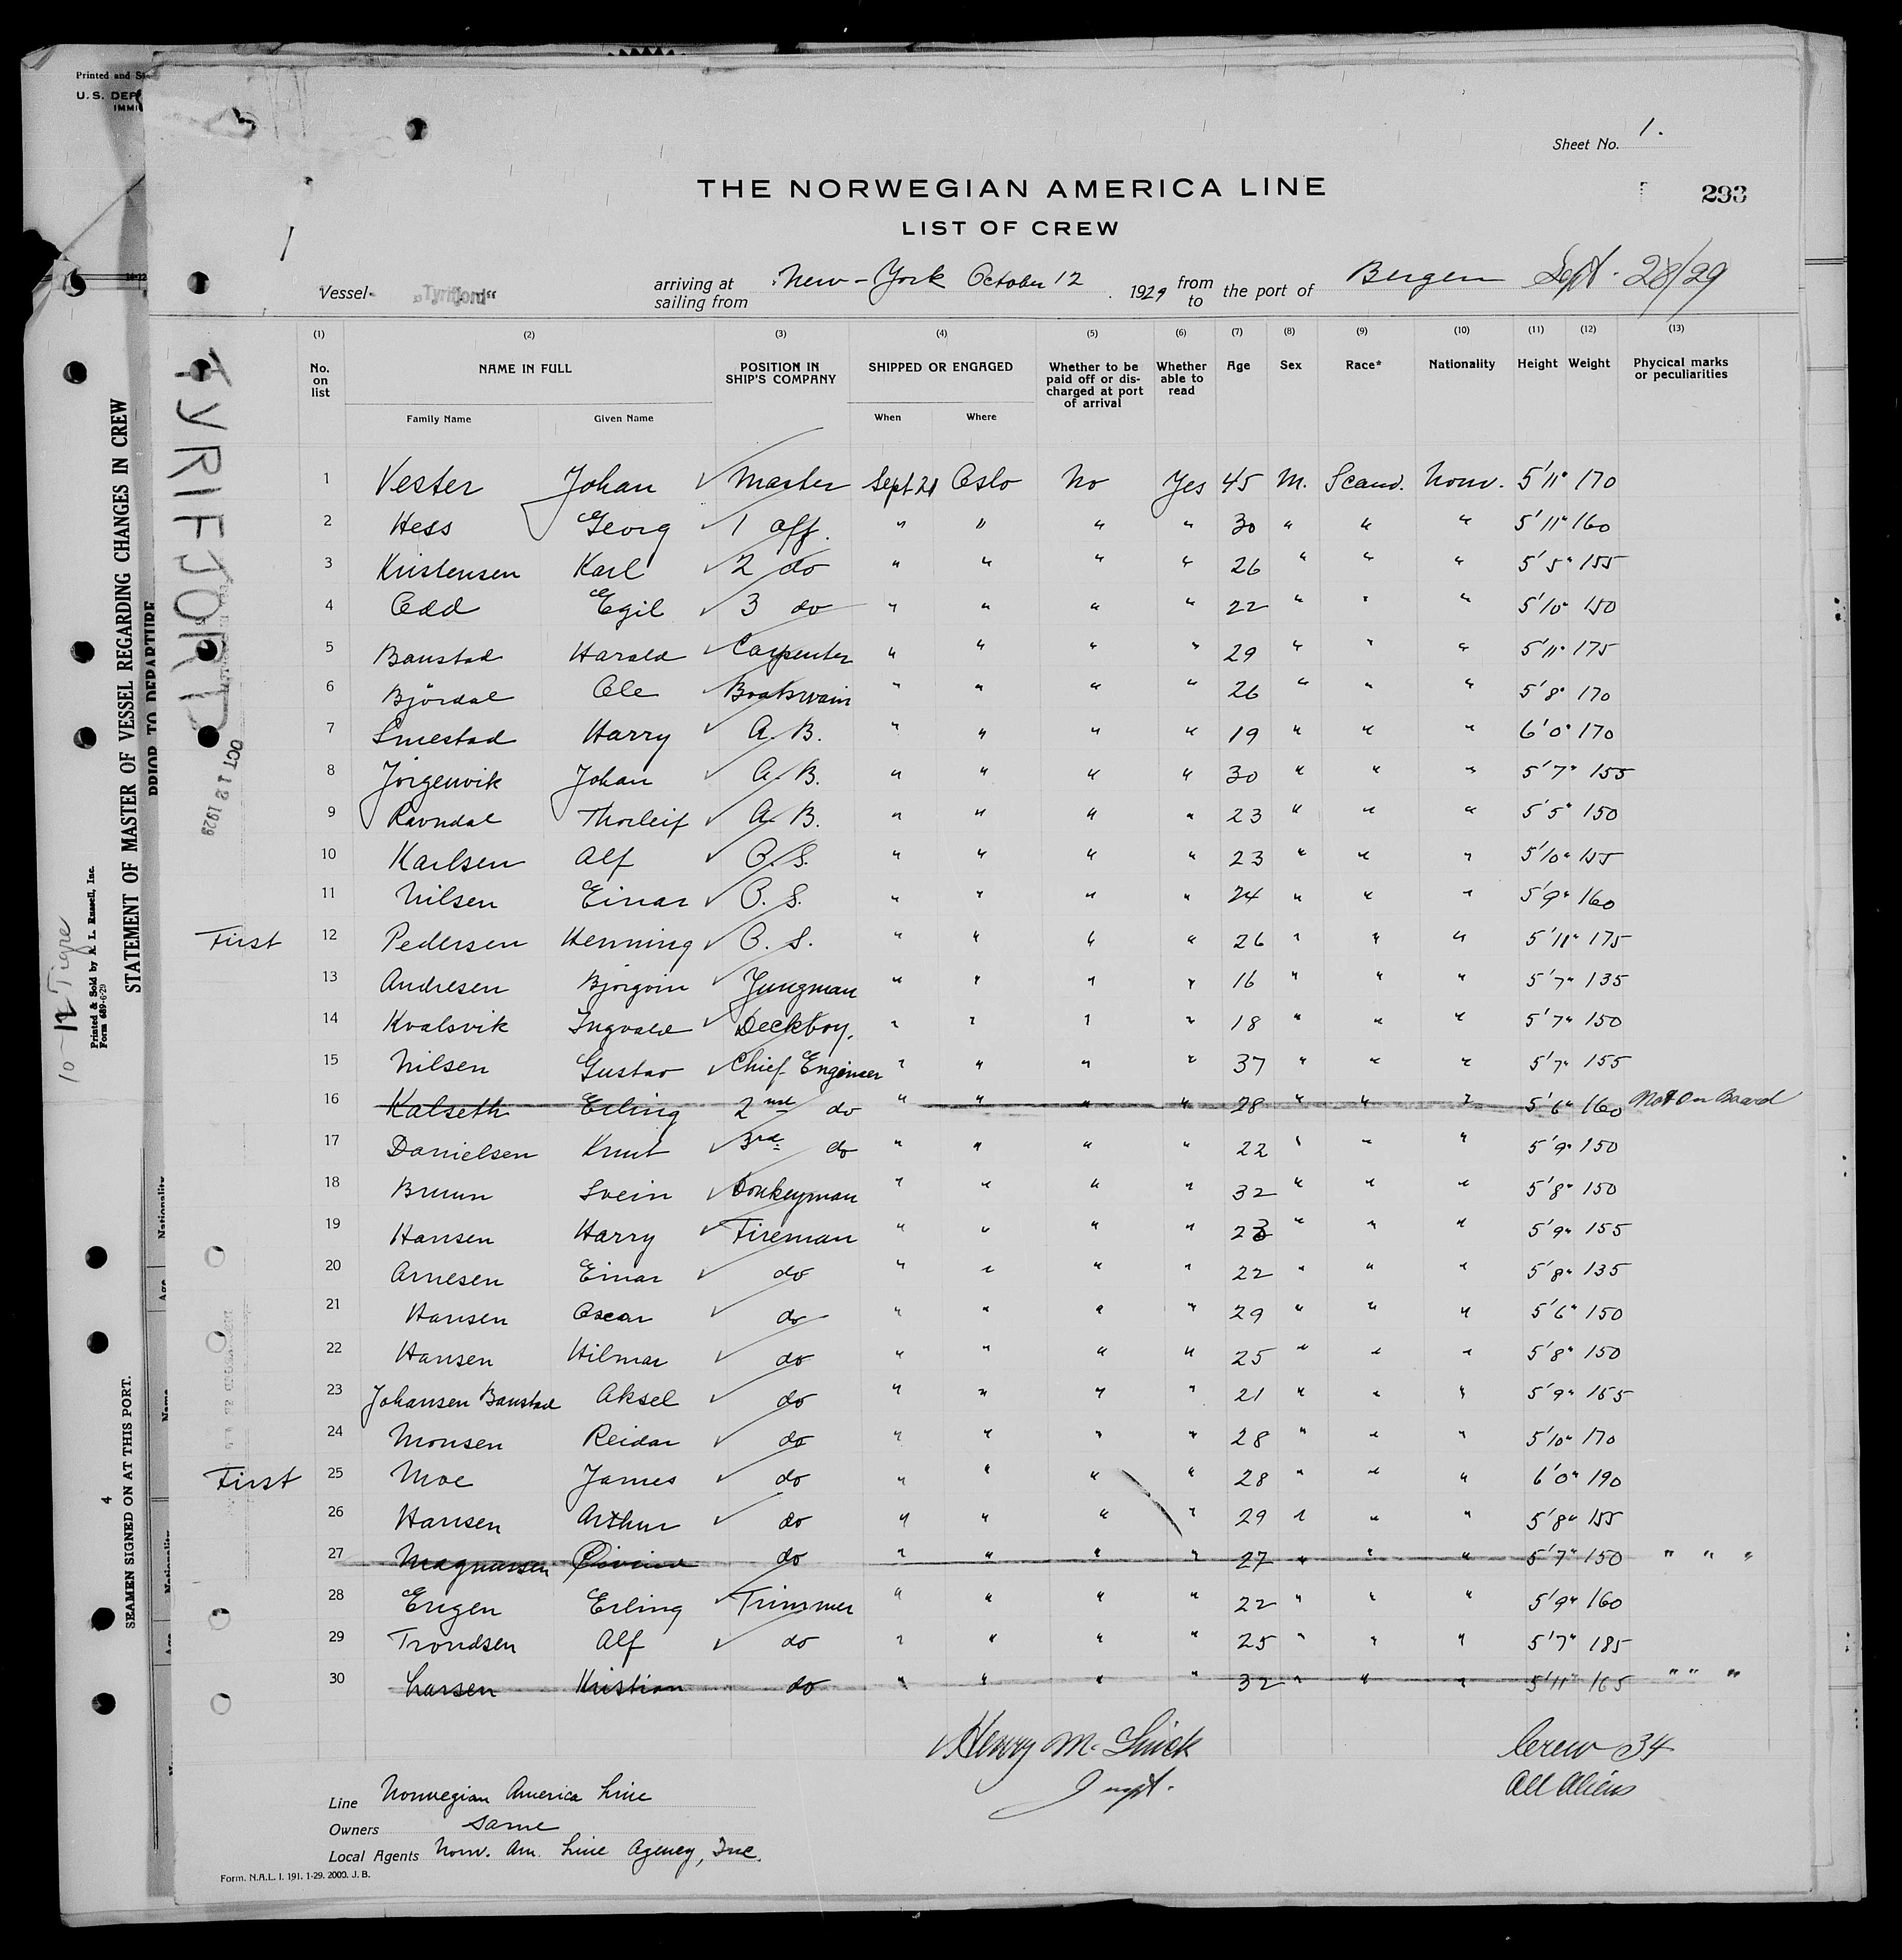 Printed and S
U. S. DEP
IMMI
Sheet No. 1.
THE NORWEGIAN AMERICA LINE
293
LIST OF CREW
Vessel „Tyrifjord“ arriving at sailing from New-York October 12 1929 from to the port of Bergen Sept. 28/29
(1) (2) (3) (4) (5) (6) (7) (8) (9) (10) (11) (12) (13)
No. on list NAME IN FULL POSITION IN SHIP'S COMPANY SHIPPED OR ENGAGED Whether to be paid off or discharged at port of arrival Whether able to read Age Sex Race* Nationality Height Weight Phycical marks or peculiarities
Family Name Given Name When Where
1 Vester Johan ✓ Master Sept 21 Oslo No Yes 45 M. Scand. Norw. 5'11" 170
2 Hess Georg ✓ 1 off. " " " " 30 " " " 5'11" 160
3 Kristensen Karl ✓ 2 do " " " " 26 " " " 5'5" 155
4 Odd Egil ✓ 3 do " " " " 22 " " " 5'10" 150
5 Banstad Harald ✓ Carpenter " " " " 29 " " " 5'11" 175
6 Björdal Ole ✓ Boatswain " " " " 26 " " " 5'8" 170
7 Smestad Harry ✓ A. B. " " " " 19 " " " 6'0" 170
8 Jörgenvik Johan ✓ A. B. " " " " 30 " " " 5'7" 155
9 Ravndal Thorleif ✓ A. B. " " " " 23 " " " 5'5" 150
10 Karlsen Alf ✓ O. S. " " " " 23 " " " 5'10" 155
11 Nilsen Einar ✓ O. S. " " " " 24 " " " 5'9" 160
First 12 Pedersen Henning ✓ O. S. " " " " 26 " " " 5'11" 175
13 Andresen Bjorgvin ✓ Jungman " " " " 16 " " " 5'7" 135
14 Kvalsvik Ingvald ✓ Deckboy. " " " " 18 " " " 5'7" 150
15 Nilsen Gustav ✓ Chief Engineer " " " " 37 " " " 5'7" 155
16 Kalseth Erling 2nd do " " " " 28 " " " 5'6" 160 Not On Board
17 Danielsen Knut ✓ 3rd do " " " " 22 " " " 5'9" 150
18 Bruun Svein ✓ Donkeyman " " " " 32 " " " 5'8" 150
19 Hansen Harry ✓ Fireman " " " " 23 " " " 5'9" 155
20 Arnesen Einar ✓ do " " " " 22 " " " 5'8" 135
21 Hansen Oscar ✓ do " " " " 29 " " " 5'6" 150
22 Hansen Hilmar ✓ do " " " " 25 " " " 5'8" 150
23 Johansen Banstad Aksel ✓ do " " " " 21 " " " 5'9" 155
24 Monsen Reidar ✓ do " " " " 28 " " " 5'10" 170
First 25 Moe James ✓ do " " " " 28 " " " 6'0" 190
26 Hansen Arthur ✓ do " " " " 29 " " " 5'8" 155
27 Magnussen do " " " " 27 " " " 5'7" 150 " " "
28 Engen Erling ✓ Trimmer " " " " 22 " " " 5'9" 160
29 Trondsen Alf ✓ do " " " " 25 " " " 5'7" 185
30 Larsen Kristian do " " " " 32 " " " 5'11" 165 " " "
Henry M. Crew 34
Inspt. All Aliens
Line Norwegian America Line
Owners Same
Local Agents Norw. Am. Line Agency, Inc.
Form. N.A.L. I. 191. 1-29. 2000. J. B.
TYRIFJORD
OCT 12 1929
STATEMENT OF MASTER OF VESSEL REGARDING CHANGES IN CREW
PRIOR TO DEPARTURE
Printed & Sold by R. L. Russell, Inc.
Form 689-6-29
10-12 Tigre
SEAMEN SIGNED ON AT THIS PORT.
4
Nationality
Age
Name
Nationality
Age